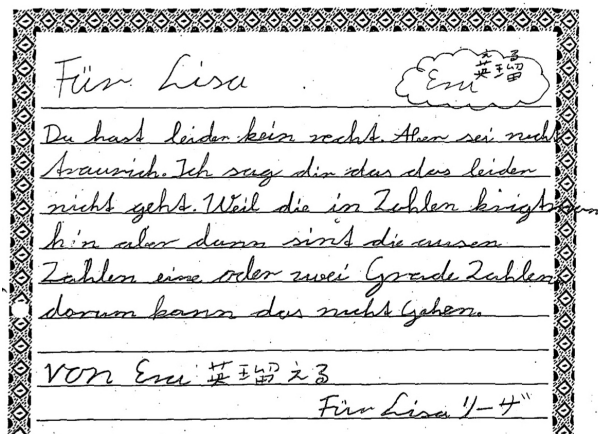 Für Lisa
える
Eru 英瑠
Du hast leider kein recht. Aber sei nicht
traurich. Ich sag dir das das leider
nicht geht. Weil die in Zahlen krigt man
hin aber dann sint die ausen
Zahlen eine oder zwei Grade Zahlen
dorum kann das nicht Gehen.
von Eru 英瑠 える
Für Lisa リーザ